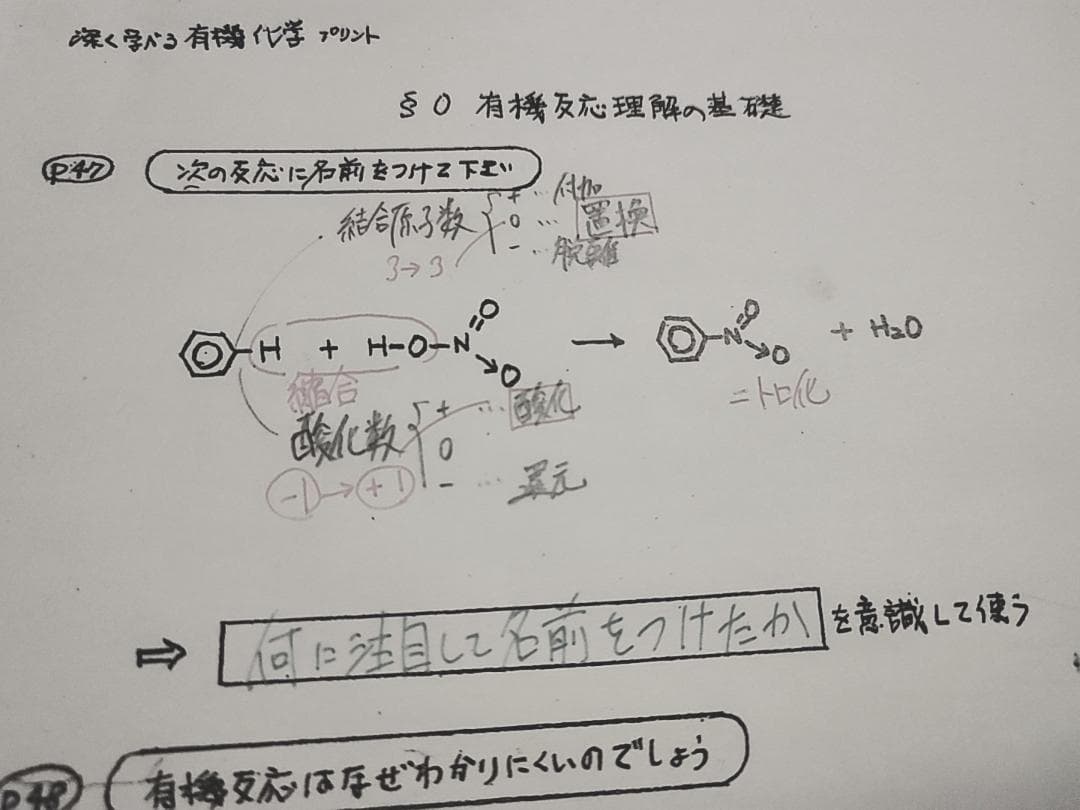 深く学べる有機化学 プリント
§0 有機反応理解の基礎
P.47 次の反応に名前をつけて下さい
結合原子数 + … 付加
0 … 置換
− … 脱離
3→3
H + H-O-N O O → N O O + H₂O
縮合
ニトロ化
酸化数 + … 酸化
0
− … 還元
-1→+1
⇒ 何に注目して名前をつけたか を意識して使う
P48 有機反応はなぜわかりにくいのでしょう